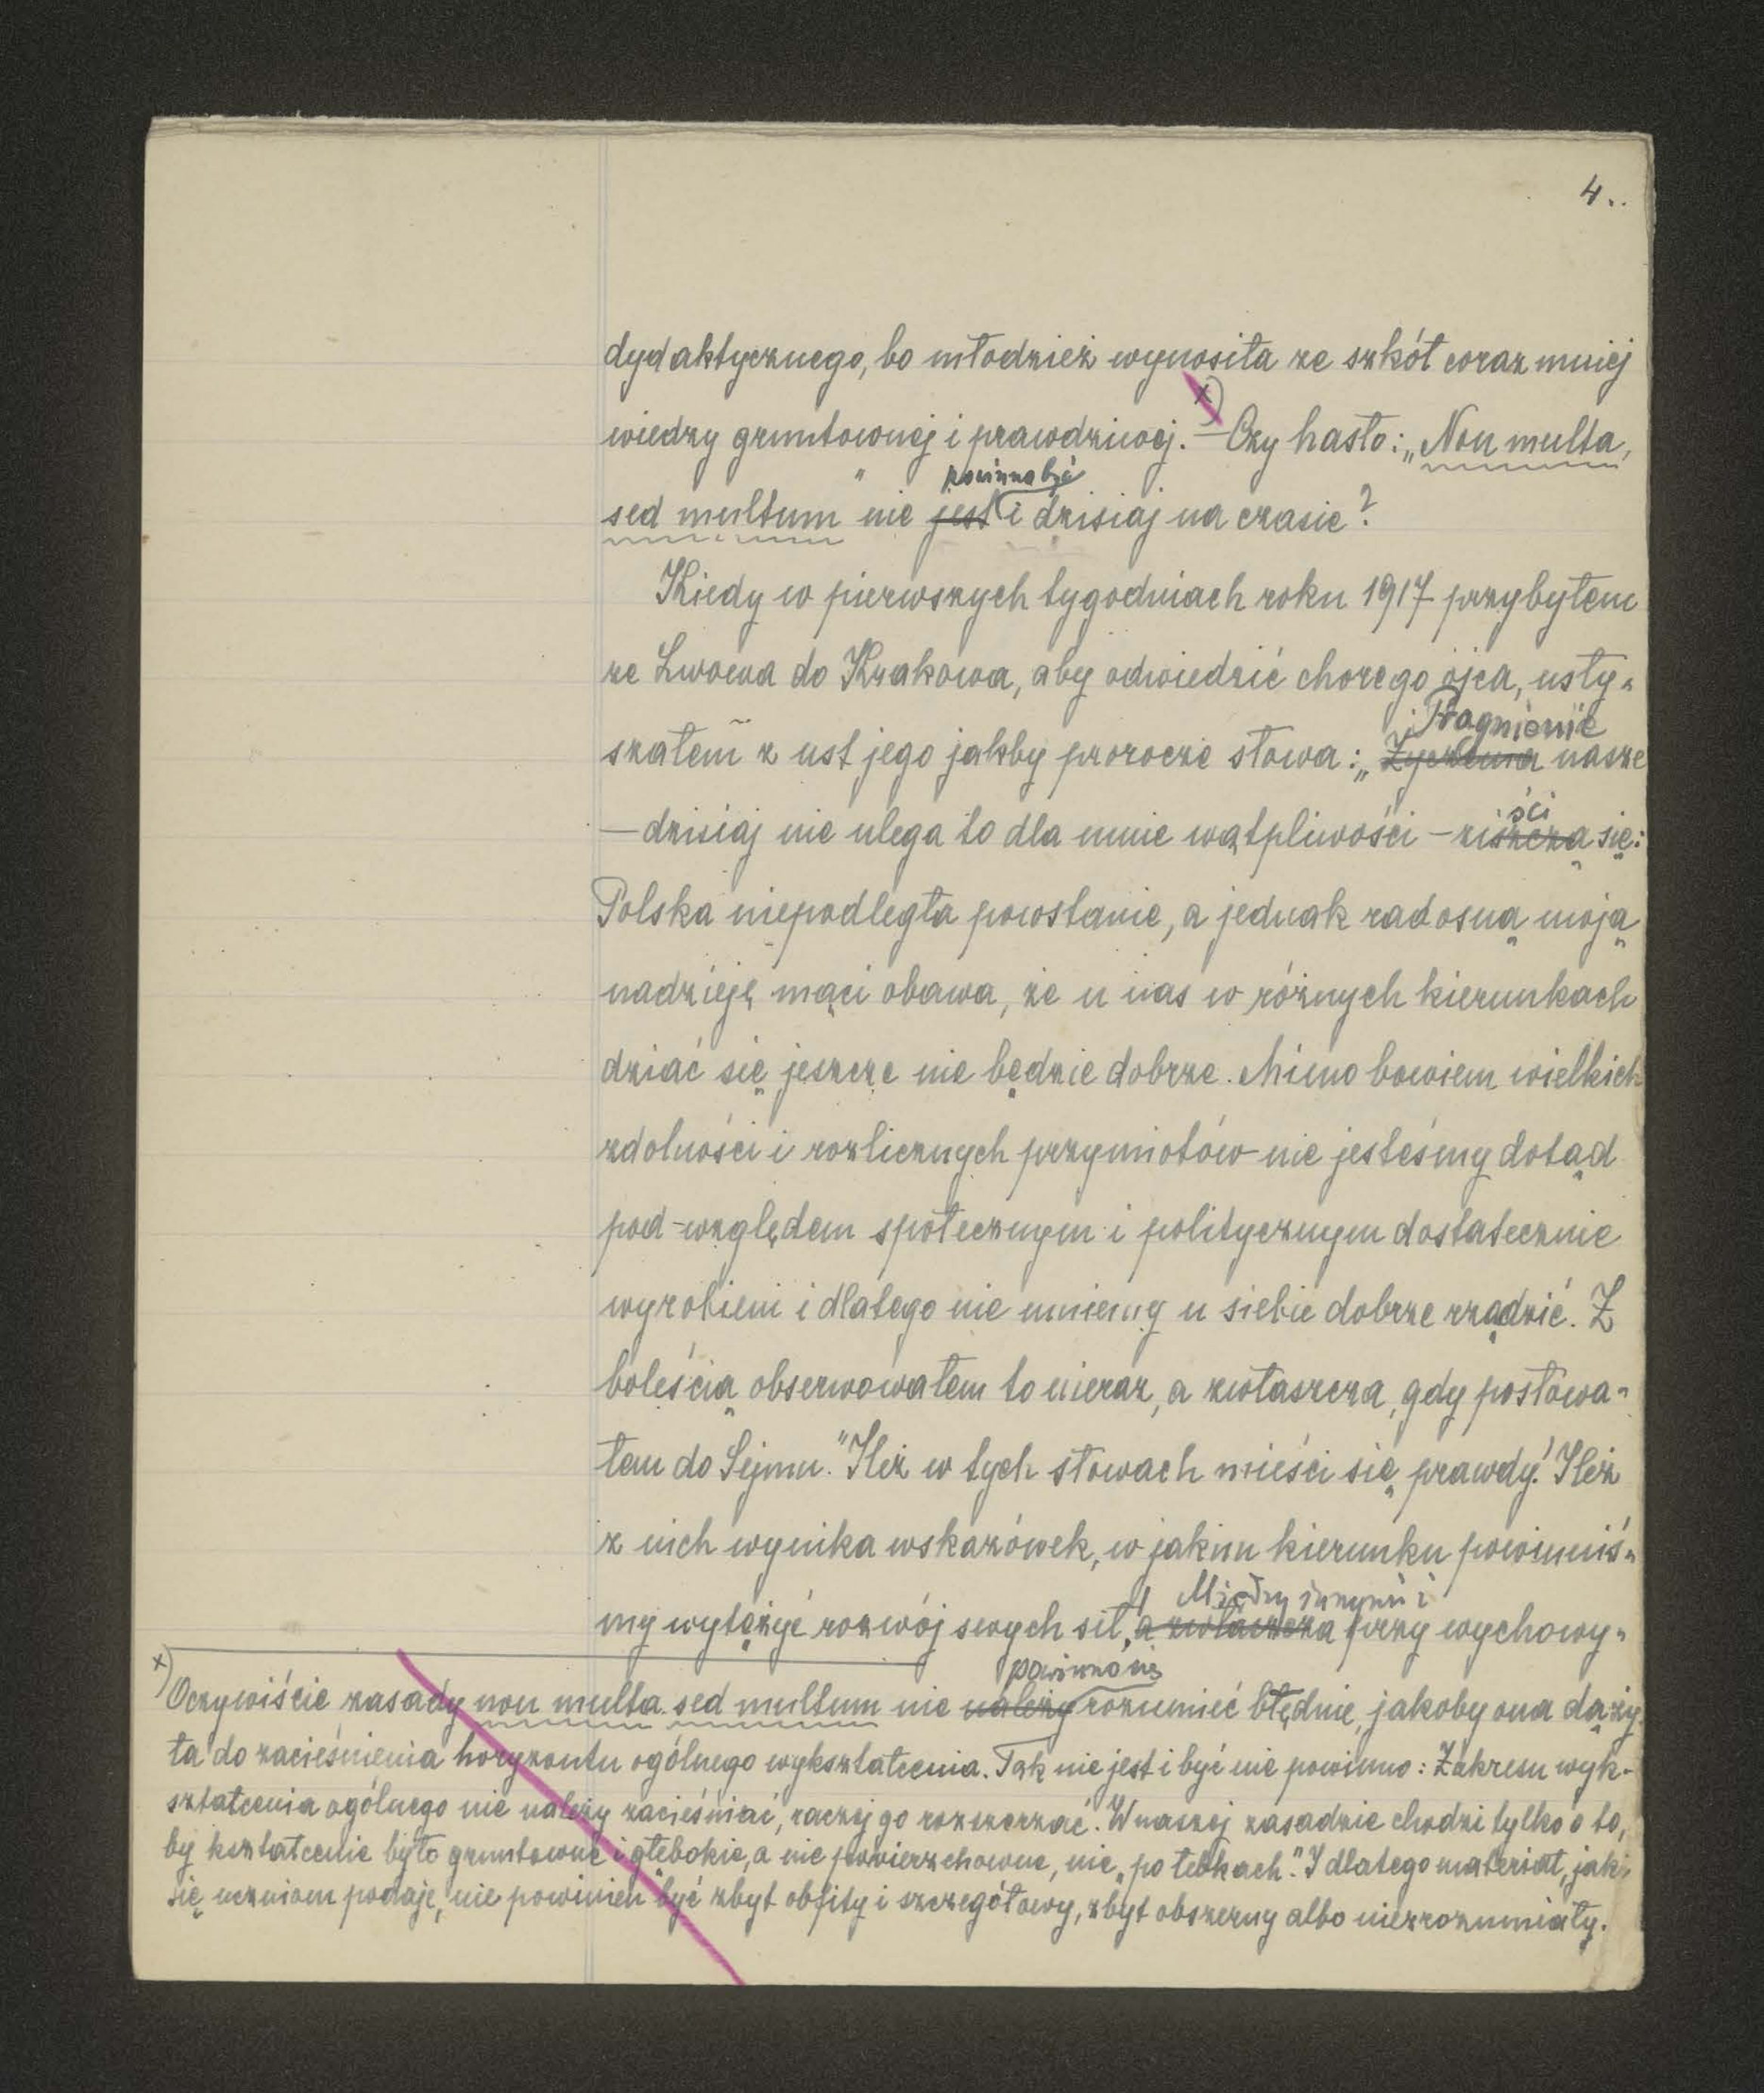 4.
dydaktycznego, bo młodzież wynosiła ze szkół coraz mniej
x)
wiedzy gruntownej i prawdziwej. — Czy hasło: „Non multa,
powinno być
sed multum" nie jest i dzisiaj na czasie?
Kiedy w pierwszych tygodniach roku 1917 przybyłem
ze Lwowa do Krakowa, aby odwiedzić chorego ojca, usły-
Pragnienie
szałem z ust jego jakby prorocze słowa: „Życzenia nasze
ści
— dzisiaj nie ulega to dla mnie wątpliwości — ziszczą się:
Polska niepodległa powstanie, a jednak radosną moją
nadzieję mąci obawa, że u nas w różnych kierunkach
dziać się jeszcze nie będzie dobrze. Mimo bowiem wielkich
zdolności i rozlicznych przymiotów nie jesteśmy dotąd
pod względem społecznym i politycznym dostatecznie
wyrobieni i dlatego nie umiemy u siebie dobrze rządzić. Z
boleścią obserwowałem to nieraz, a zwłaszcza, gdy posłowa-
łem do Sejmu." Ileż w tych słowach mieści się prawdy! Ileż
z nich wynika wskazówek, w jakim kierunku powinniś-
Między innymi i
my wytężyć rozwój swych sił, a zwłaszcza przy wychowy-
x)
powinno się
Oczywiście zasady non multa sed multum nie należy rozumieć błędnie, jakoby ona dąży-
ła do zacieśnienia horyzontu ogólnego wykształcenia. Tak nie jest i być nie powinno: Zakresu wyk-
ształcenia ogólnego nie należy zacieśniać, raczej go rozszerzać. W naszej zasadzie chodzi tylko o to,
by kształcenie było gruntowne i głębokie, a nie powierzchowne, nie „po łebkach". I dlatego materiał, jaki
się uczniom podaje, nie powinien być zbyt obfity i szczegółowy, zbyt obszerny albo niezrozumiały.